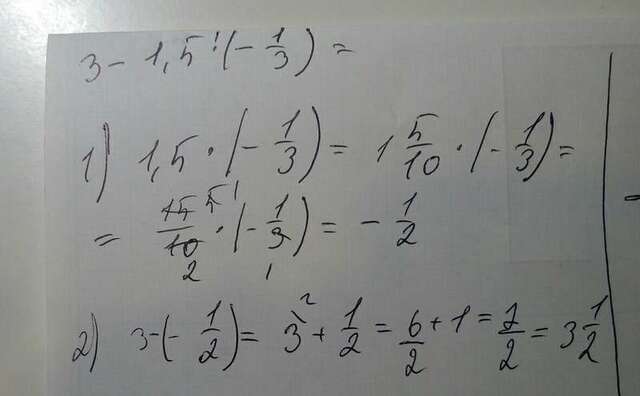 3 - 1,5 · (- 1/3) =
1) 1,5 · (- 1/3) = 1 5/10 · (- 1/3) =
= 15 5 1/10 2 · (- 1/3 1) = - 1/2
2) 3 - (- 1/2) = 3 2 + 1/2 = 6 + 1/2 = 7/2 = 3 1/2